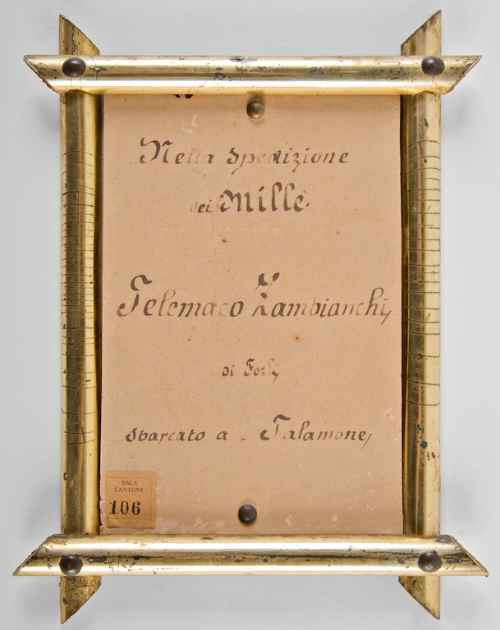 Nella Spedizione
dei Mille
Telemaco Zambianchi,
di Forlì,
sbarcato a - Talamone,
SALA
ZANTONI
106